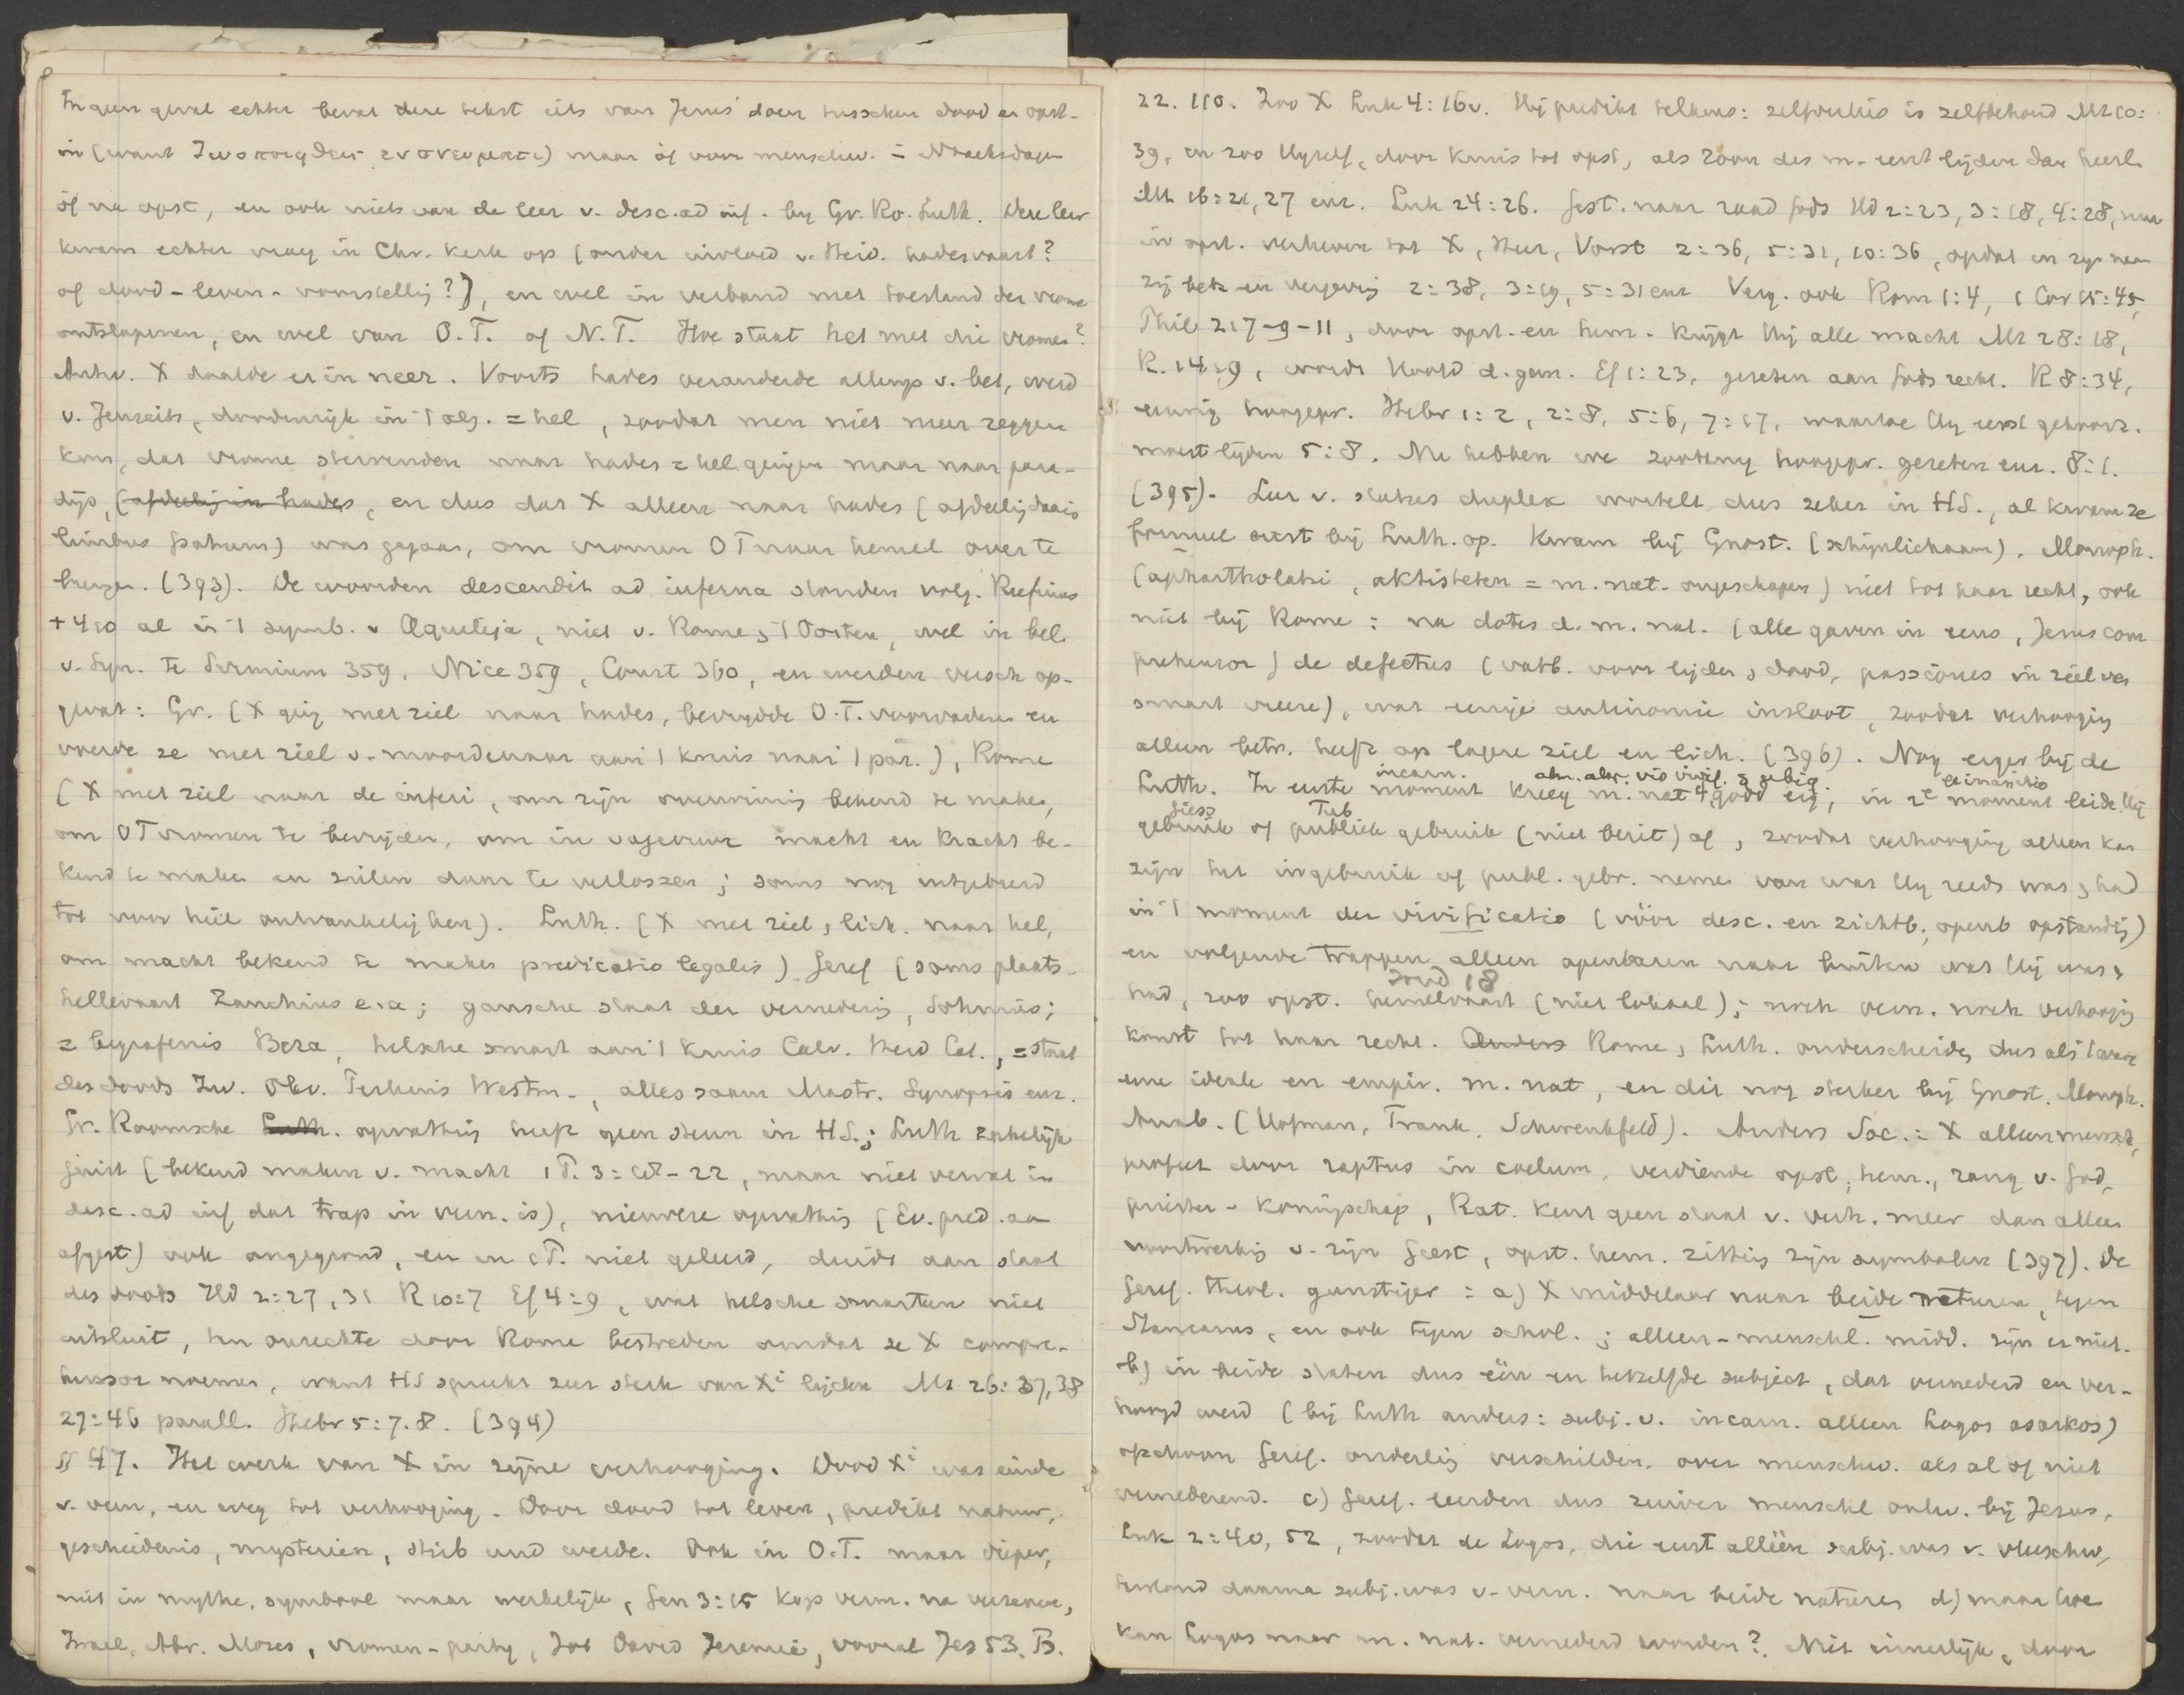 In geen geval echter bevat deze tekst iets van Jezus' doen tusschen dood en opst-
in (want ζωοποιηθεις εν πνευματι) maar óf voor menschw. = Noachsdagen
óf na opst, en ook niets van de leer v. desc. ad inf. by Gr. Ro. Luth. Deze leer
kwam echter vroeg in Chr. kerk op (onder invloed v. Heid. hadesvaart?
of dood-leven-voorstellig?), en wel in verband met toestand der vrome
ontslapenen, en wel van O.T. of N.T. Hoe staat het met die vromen?
Antw. X daalde er in neer. Voorts hades veranderde allengs v. bet, werd
v. Jenseits, doodenrijk in 't alg. = hel, zoodat men niet meer zeggen
kon, dat vrome stervenden naar hades = hel gingen maar naar para-
dijs, (afdeelig in hades, en dus dat X alleen naar hades (afdeelig daarin
limbus patrum) was gegaan, om vromen OT naar hemel over te
brengen. (393). De woorden descendit ad inferna stonden volg. Rufinus
+ 410 al in 't symb. v Aquileja, niet v. Rome, 't Oosten, wel in bel.
v. Syn. te Sirmium 359, Nice 359, Const 360, en werden versch op-
gevat: Gr. (X ging met ziel naar hades, bevrydde O.T. voorvaderen en
voerde ze met ziel v. moordenaar aan 't kruis naar 't par.), Rome
(X met ziel naar de inferi, om zijn overwinnig bekend te maken,
om OT vromen te bevrijden, om in vagevuur macht en kracht be-
kend te maken en zielen daar te verlossen; soms nog uitgebreid
tot voor heil ontvankelijken). Luth. (X met ziel, lich. naar hel,
om macht bekend te maken predicatio legalis) Geref (soms plaats-
hellevaart Zanchius e.a; gansche staat der vernedering, Sohnius;
= begrafenis Beza, helsche smart aan 't kruis Calv. Heid Cat., = staat
des doods Zw. Olev. Perkins Westm., alles saam Mastr. Synopsis enz.
Gr. Roomsche Luth. opvattig heeft geen steun in HS.; Luth zakelijk
juist (bekend maken v. macht 1 P. 3:19-22, maar niet vervat in
desc. ad inf dat trap in vern. is), nieuwere opvattig (Ev. pred. aan
afgest) ook ongegrond, en in 1 P. niet geleerd, duidt aan staat
des doods Hd 2:27, 31 R 10:7 Ef 4:9, wat helsche smarten niet
uitsluit, ten onrechte door Rome bestreden omdat ze X compre-
hensor noemen, want HS spreekt zeer sterk van Xⁱ lijden Mt 26:37,38
27:46 parall. Hebr 5:7.8. (394)
§ 47. Het werk van X in zijne verhooging. Dood Xⁱ was einde
v. vern, en weg tot verhooging. Door dood tot leven, predikt natuur,
geschiedenis, mysterien, stirb und werde. Ook in O.T. maar dieper,
niet in mythe, symbool maar werkelijk, Gen 3:15 kop verm. na verzenen,
Israel, Abr. Mozes, vromen-party, Job David Jeremia, vooral Jes 53. Ps.
22. 110. Zoo X Luk 4:16v. Hij predikt telkens: zelfverlies is zelfbehoud Mt 10:
39, en zoo Hyzelf, door kruis tot opst, als zoon des m. eerst lijden dan heerl.
Mt 16:21, 27 enz. Luk 24:26. Gest. naar raad Gods Hd 2:23, 3:18, 4:28, maar
in opst. verheven tot X, Heer, Vorst 2:36, 5:31, 10:36, opdat in zijn naam
zij bek. en vergevig 2:38, 3:19, 5:31 enz Verg. ook Rom 1:4, 1 Cor 15:45,
Phil 2:7-9-11, door opst. en hem. krijgt Hij alle macht Mt 28:18,
R. 14:9, wordt Hoofd d. gem. Ef 1:23, gezeten aan Gods recht. R 8:34,
eeuwig hoogepr. Hebr 1:2, 2:8, 5:6, 7:17, waartoe Hy eerst gehoorz.
moest lijden 5:8. Nu hebben we zoodanig hoogepr. gezeten enz. 8:1.
(395). Leer v. status duplex wortelt dus zeker in HS., al kwam ze
formeel eerst bij Luth. op. Kwam bij Gnost. (schijnlichaam), Monoph.
(aphartholatri, aktisteten = m. nat. ongeschapen) niet tot haar recht, ook
niet bij Rome: na dotes d. m. nat. (alle gaven in eens, Jezus com
prehensor) de defectus (vatb. voor lijden, dood, passiones in ziel van
smart vreeze), wat eenige antinomie insloot, zoodat verhoogig
alleen betr. heeft op lagere ziel en lich. (396). Nog erger bij de
Luth. In eerste moment incarn. kreeg m. nat godd eig; in 2ᵉ moment exinanitio leide Hij
gebruik Giess of publiek Tub gebruik (niet bezit) af, zoodat verhooging alleen kan
zijn het in gebruik of publ. gebr. nemen van wat Hy reeds was, had
in 't moment der vivificatio (vóór desc. en zichtb., openb opstandig)
en volgende trappen alleen openbaren naar buiten wat Hij was,
had, zoo opst. hemelvaart (niet lokaal); noch vern. noch verhoogig
komt tot haar recht. Anders Rome, Luth. onderscheiden dus als 't ware
eene ideale en empir. m. nat, en dit nog sterker bij Gnost. Monoph.
Anab. (Hofman, Frank, Schwenkfeld). Anders Soc.: X alleen mensch,
profeet door raptus in coelum, verdiende opst, hem., rang v. God,
priester-koningschap, Rat. kent geen staat v. verh. meer dan alleen
voortwerkig v. zijn Geest, opst. hem. zittig zijn symbolen (397). De
Geref. theol. gunstiger: a) X middelaar naar beide naturen, tegen
Stancarus, en ook tegen schol.; alleen-menschl. midd. zijn er niet.
b) in beide staten dus één en hetzelfde subject, dat vernederd en ver-
hoogd werd (bij Luth anders: subj. v. incarn. alleen Logos asarkos)
ofschoon Geref. onderlig verschilden, over menschw. als al of niet
vernederend. c) Geref. leerden dus zuiver menschel ontw. bij Jezus,
Luk 2:40, 52, zoodat de Logos, die eerst alléén subj. was v. vleeschw,
daarna subj. was v. vern. naar beide naturen d) maar hoe
kan Logos naar m. nat. vernederd worden? Niet innerlijk, door